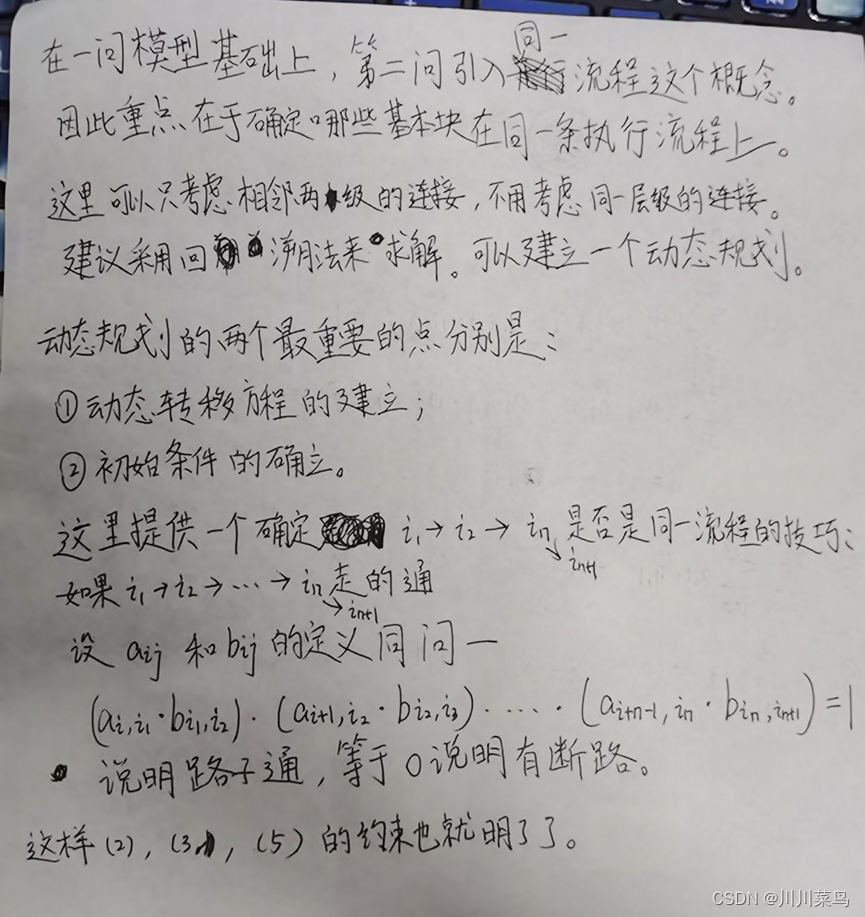 在一问模型基础上，第二问引入同一流程这个概念。
因此重点在于确定哪些基本块在同一条执行流程上。
这里可以只考虑相邻两级的连接，不用考虑同一层级的连接。
建议采用回溯法来求解。可以建立一个动态规划。
动态规划的两个最重要的点分别是：
①动态转移方程的建立；
②初始条件的确立。
这里提供一个确定 i₁→i₂→iₙ→iₙ₊₁ 是否是同一流程的技巧：
如果 i₁→i₂→…→iₙ→iₙ₊₁ 走的通
设 aij 和 bij 的定义同问一
(a_{i,i₁}·b_{i₁,i₂})·(a_{i+1,i₂}·b_{i₂,i₃})·…·(a_{i+n-1,iₙ}·b_{iₙ,iₙ₊₁})=1
说明路子通，等于0说明有断路。
这样(2)，(3)，(5)的约束也就明了了。
CSDN @川川菜鸟